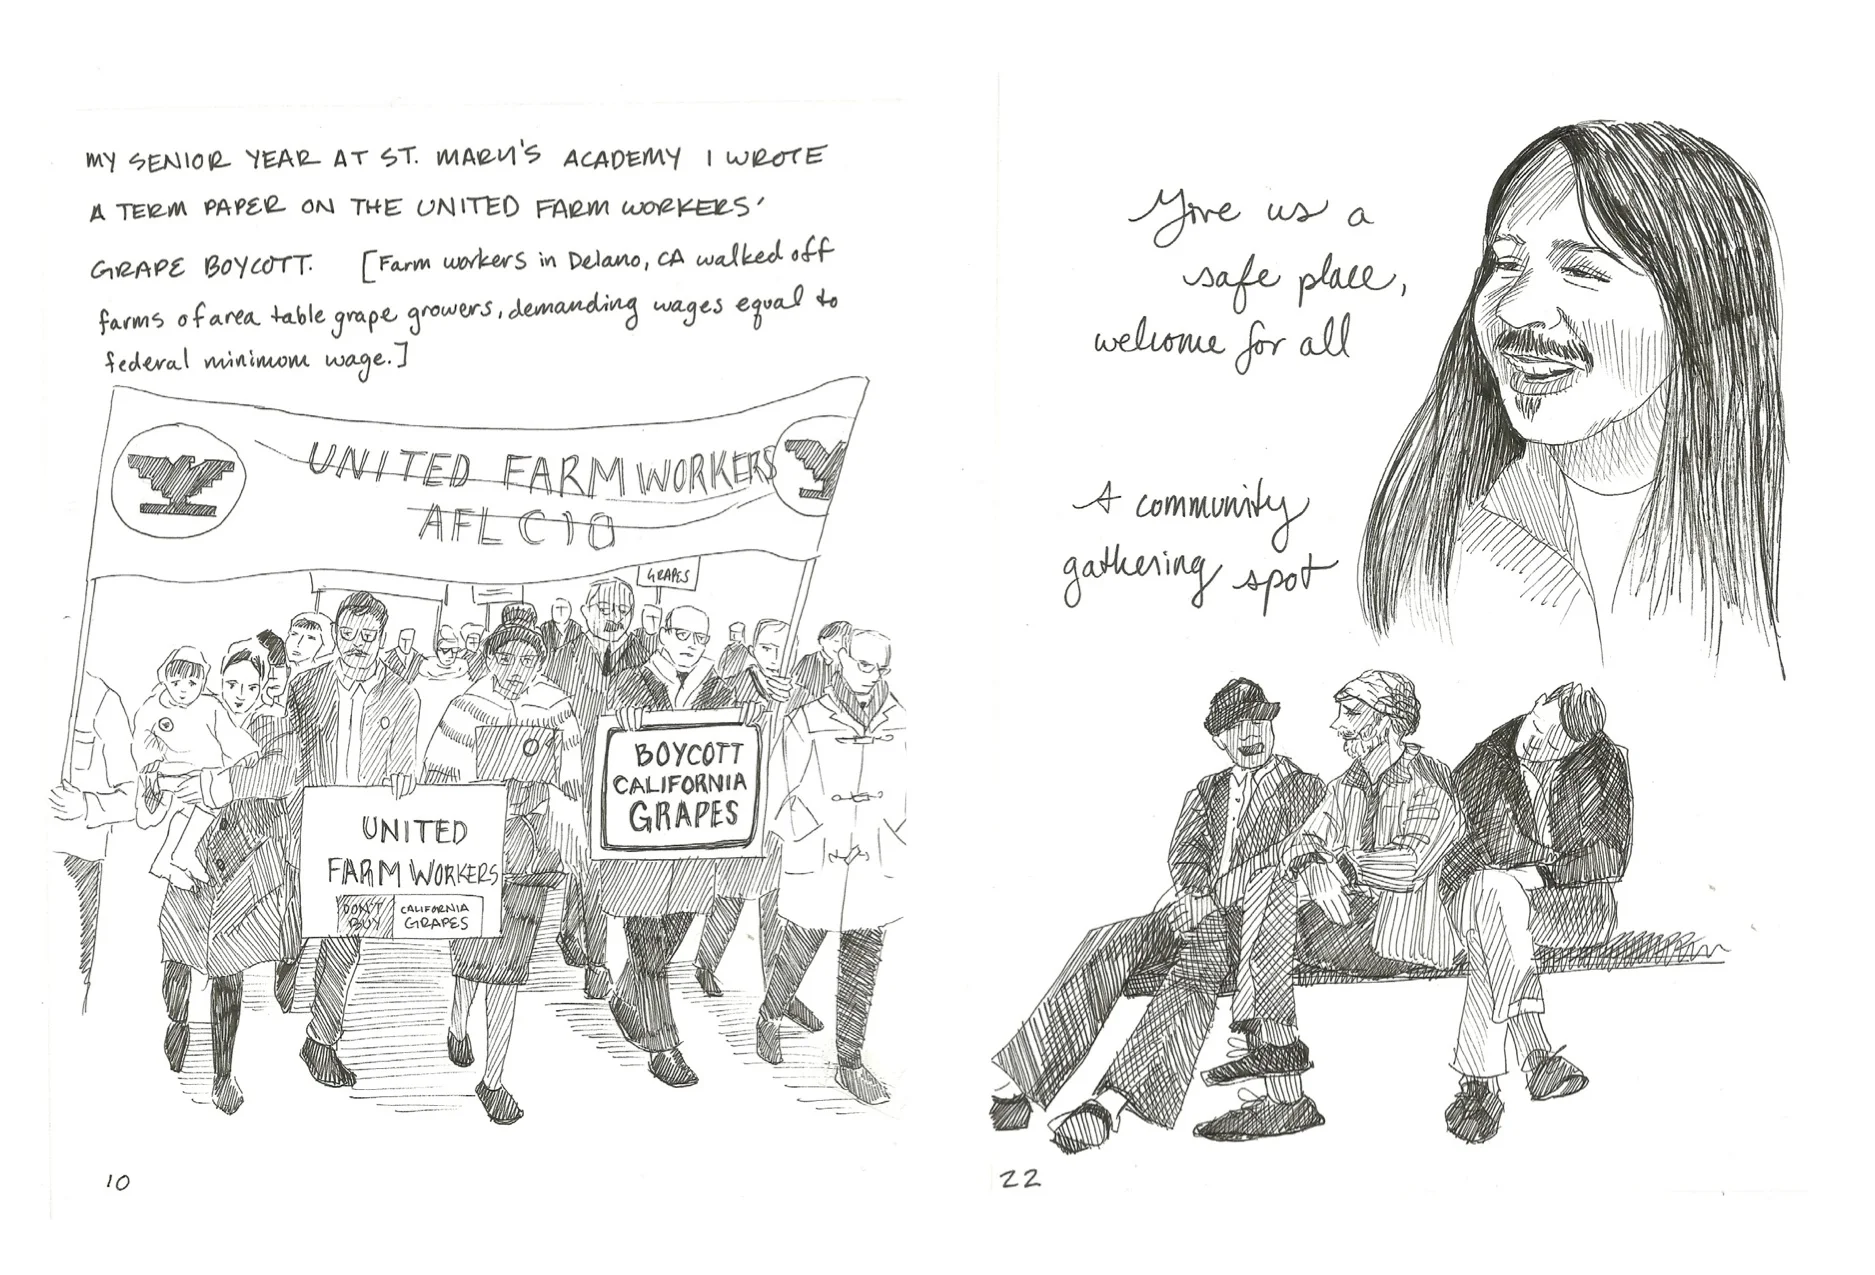 MY SENIOR YEAR AT ST. MARY'S ACADEMY I WROTE
A TERM PAPER ON THE UNITED FARM WORKERS'
GRAPE BOYCOTT. [Farm workers in Delano, CA walked off
farms of area table grape growers, demanding wages equal to
federal minimum wage.]
UNITED FARM WORKERS
AFL CIO
GRAPES
BOYCOTT
CALIFORNIA
GRAPES
UNITED
FARM WORKERS
DON'T
BUY
CALIFORNIA
GRAPES
10
Give us a
safe place,
welcome for all
A community
gathering spot
22